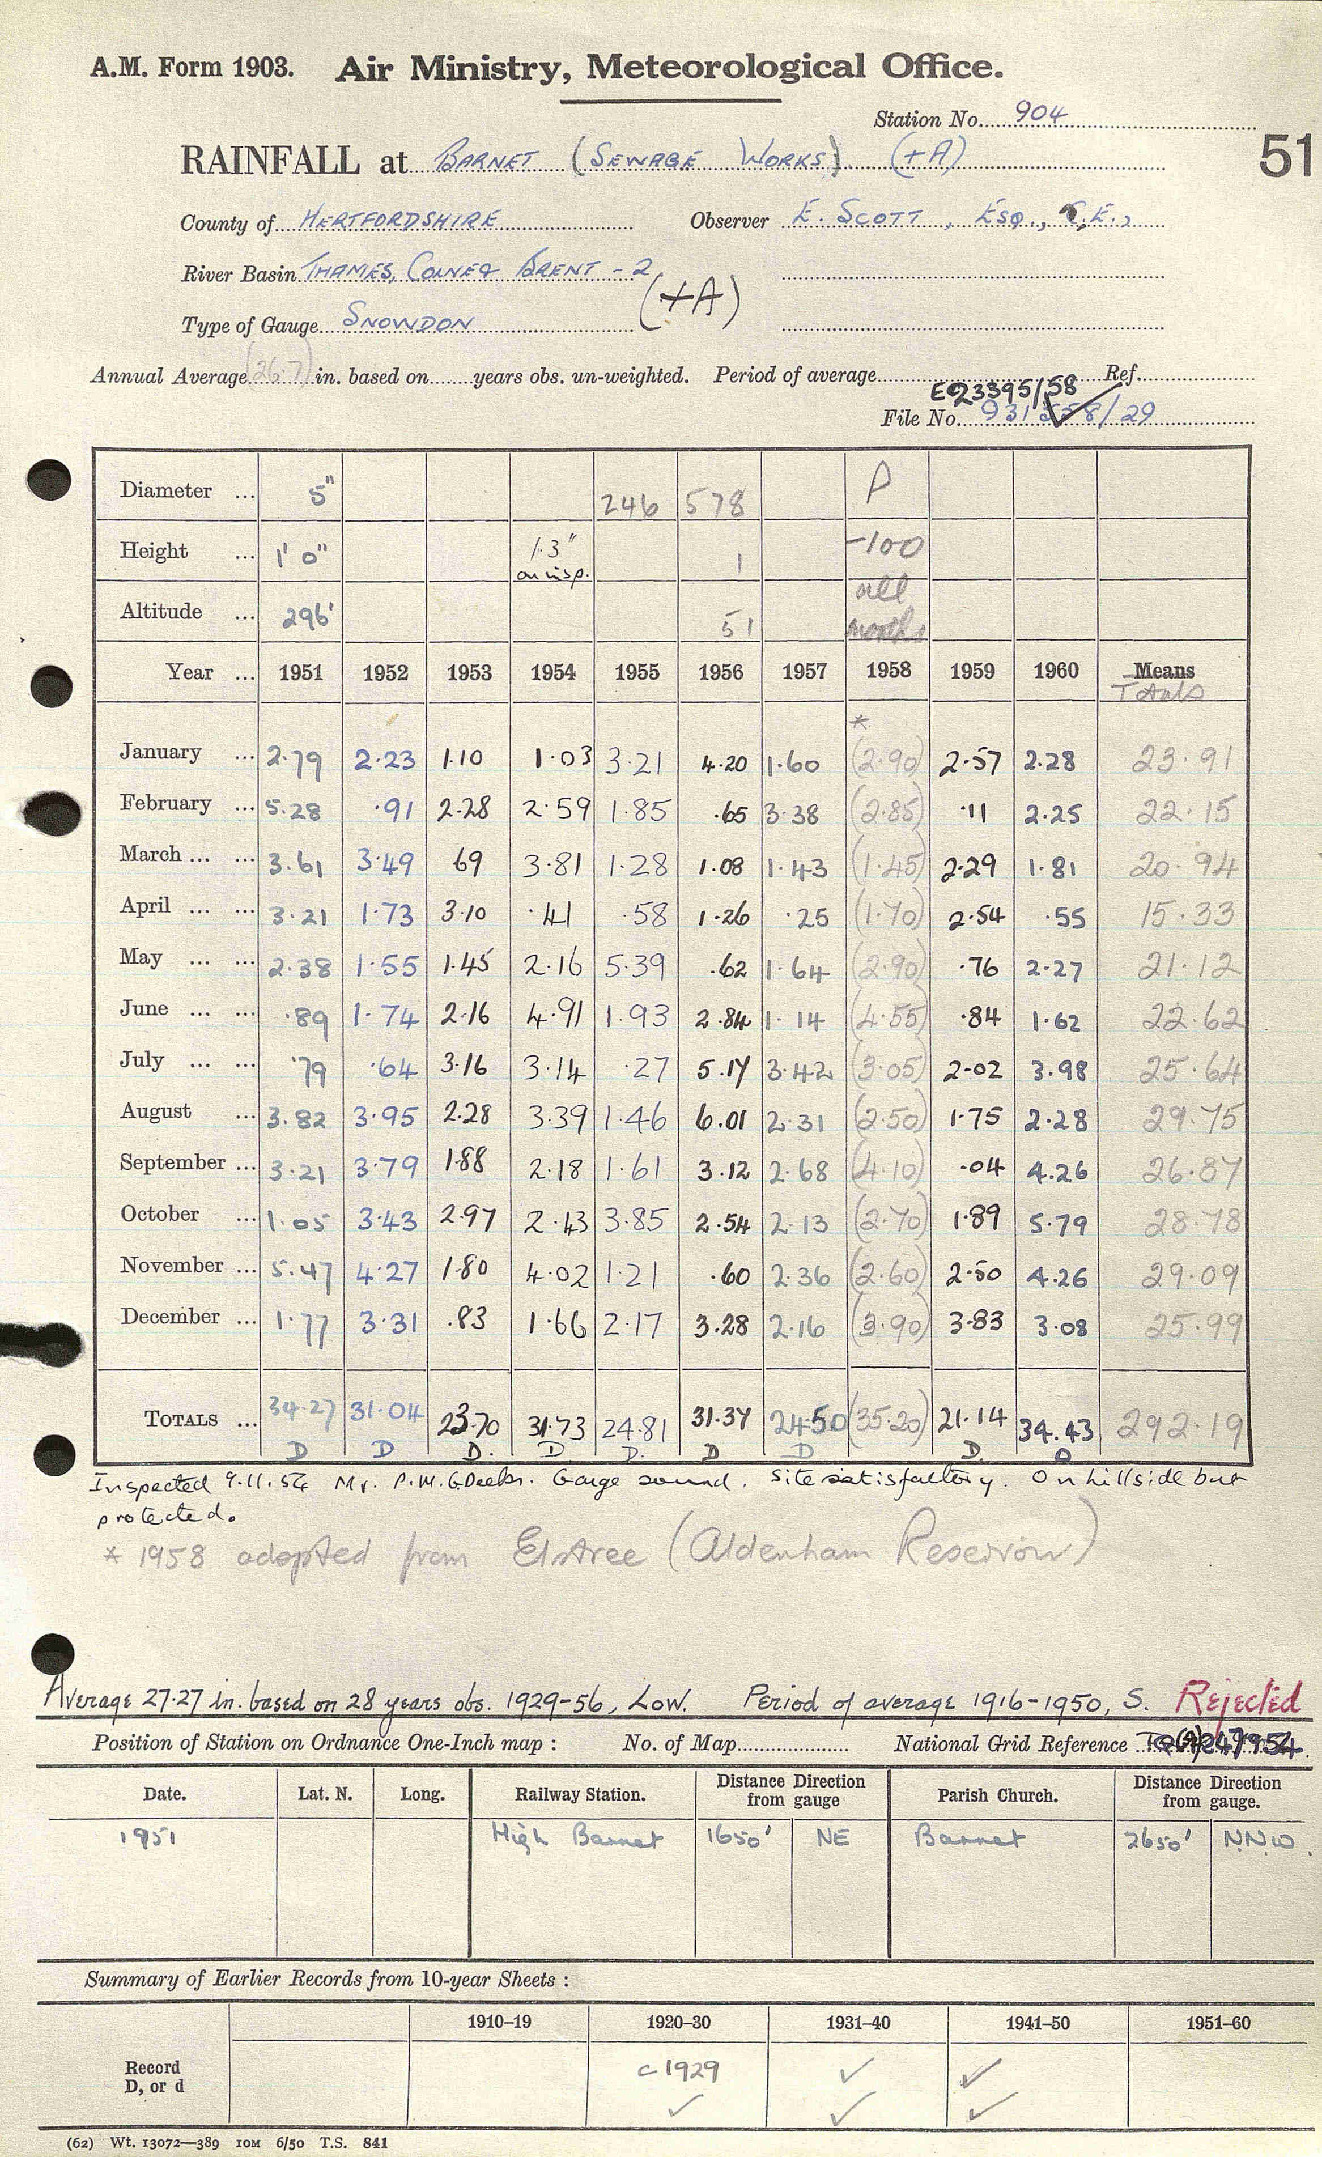 A.M. Form 1903. Air Ministry, Meteorological Office.
Station No. 904
51
RAINFALL at BARNET (SEWAGE WORKS) (+A)
County of HERTFORDSHIRE Observer E. SCOTT, ESQ., C.E.,
River Basin THAMES, COLNE & BRENT - 2
(+A)
Type of Gauge SNOWDON
Annual Average (26.7) in. based on years obs. un-weighted. Period of average Ref.
23395/58
File No. 931558/29
Diameter ... 5" 246 578 P
Height ... 1' 0" 1.3" on insp. 1 -100
Altitude ... 296' 51 all months
Year ... 1951 1952 1953 1954 1955 1956 1957 1958 1959 1960 Means
Totals
*
January ... 2.79 2.23 1.10 1.03 3.21 4.20 1.60 (2.90) 2.57 2.28 23.91
February ... 5.28 .91 2.28 2.59 1.85 .65 3.38 (2.85) .11 2.25 22.15
March ... ... 3.61 3.49 69 3.81 1.28 1.08 1.43 (1.45) 2.29 1.81 20.94
April ... ... 3.21 1.73 3.10 .41 .58 1.26 .25 (1.70) 2.54 .55 15.33
May ... ... 2.38 1.55 1.45 2.16 5.39 .62 1.64 (2.90) .76 2.27 21.12
June ... ... .89 1.74 2.16 4.91 1.93 2.84 1.14 (4.55) .84 1.62 22.62
July ... ... .79 .64 3.16 3.14 .27 5.17 3.42 (3.05) 2.02 3.98 25.64
August ... 3.82 3.95 2.28 3.39 1.46 6.01 2.31 (2.50) 1.75 2.28 29.75
September ... 3.21 3.79 1.88 2.18 1.61 3.12 2.68 (4.10) .04 4.26 26.87
October ... 1.05 3.43 2.97 2.43 3.85 2.54 2.13 (2.70) 1.89 5.79 28.78
November ... 5.47 4.27 1.80 4.02 1.21 .60 2.36 (2.60) 2.50 4.26 29.09
December ... 1.77 3.31 .83 1.66 2.17 3.28 2.16 (3.90) 3.83 3.08 25.99
TOTALS ... 34.27 31.04 23.70 31.73 24.81 31.37 24.50 (35.20) 21.14 34.43 292.19
D D D. D D. D D D. D
Inspected 9.11.54 Mr. P.M.G. Gauge sound. Site satisfactory. On hillside but
protected.
* 1958 adopted from Elstree (Aldenham Reservoir)
Average 27.27 in. based on 28 years obs. 1929-56, Low. Period of average 1916-1950, S. Rejected
Position of Station on Ordnance One-Inch map : No. of Map National Grid Reference
Date. Lat. N. Long. Railway Station. Distance Direction from gauge Parish Church. Distance Direction from gauge.
1951 High Barnet 1650' NE Barnet 2650' N.N.W.
Summary of Earlier Records from 10-year Sheets :
1910–19 1920–30 1931–40 1941–50 1951–60
Record c 1929 ✓ ✓
D, or d ✓ ✓ ✓
(62) Wt. 13072—389 10M 6/50 T.S. 841